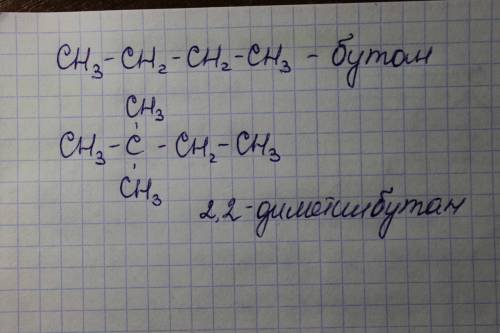 CH₃-CH₂-CH₂-CH₃ - бутан
CH₃
CH₃-C-CH₂-CH₃
CH₃
2,2-диметилбутан